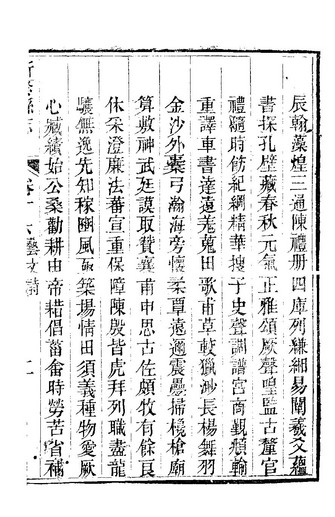 辰翰藻煌三通陳禮册四庫列縑緗易闡羲文蘊
書探孔壁藏春秋元氣正雅頌厥聲喤監古釐官
禮隨時飭紀綱精華搜子史聲調譜宮商覲頫輸
重譯車書達遠羌蒐田歌甫草敎獵沙長楊舞羽
金沙外櫜弓瀚海旁懷柔覃遠邇震疊掃欃槍廟
算敷神武廷謨取贊襄甫申思古佐頗牧有餘良
休采澄廉法蕃宣重保障陳殷皆虎拜列職盡龍
驤無逸先知稼豳風亟築場情田須義種物愛厥
心臧續始公桑勸耕由帝耤倡菑畬時勞苦省補
卷十六藝文詩